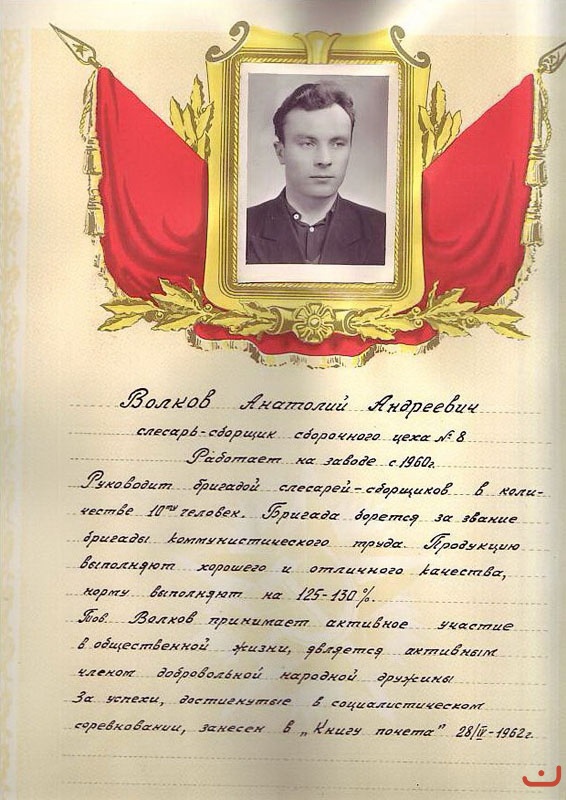 Волков Анатолий Андреевич
слесарь-сборщик сборочного цеха № 8
Работает на заводе с 1960г.
Руководит бригадой слесарей-сборщиков в коли-
честве 10ти человек. Бригада борется за звание
бригады коммунистического труда. Продукцию
выполняют хорошего и отличного качества,
норму выполняют на 125-130%.
Тов. Волков принимает активное участие
в общественной жизни, является активным
членом добровольной народной дружины
За успехи, достигнутые в социалистическом
соревновании, занесен в „Книгу почета" 28/IV-1962г.